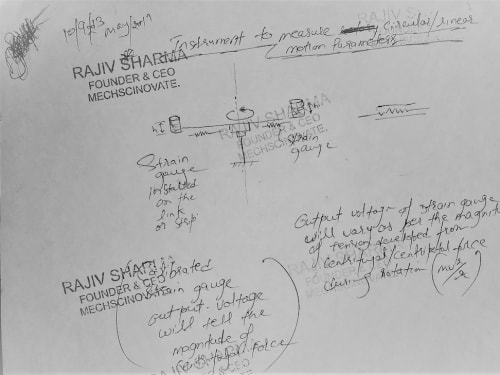 10/9/23 may/2017
Instrument to measure circular/linear
motion Parameters
RAJIV SHARMA
FOUNDER & CEO
MECHSCINOVATE.
RAJIV SHARMA
FOUNDER & CEO
MECHSCINOVATE.
Strain
gauge
installed
on the
link
or strip
Strain
gauge
Output voltage of strain gauge
will vary as per the magnitude
of tension developed from
centrifugal/centripetal force
during rotation
RAJIV SHARMA
FOUNDER & CEO
MECHSCINOVATE
Calibrated
strain gauge
output voltage
will tell the
magnitude of
centrifugal force